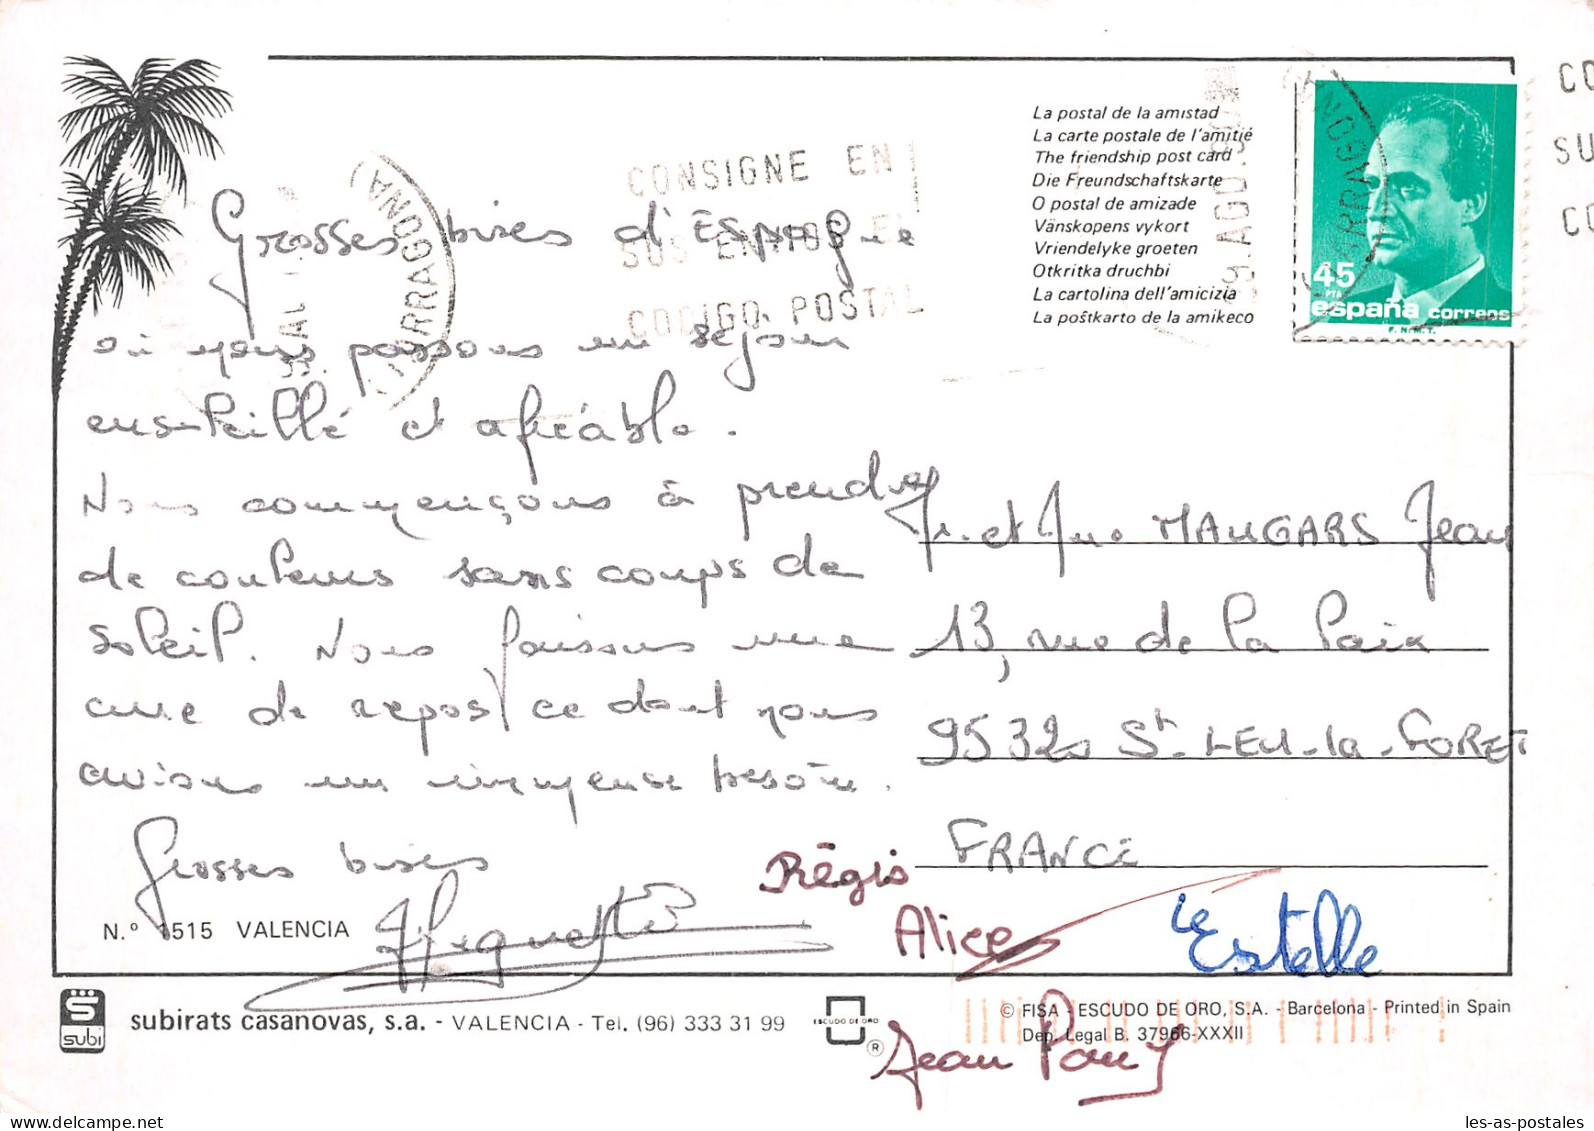 La postal de la amistad
La carte postale de l'amitié
The friendship post card
Die Freundschaftskarte
O postal de amizade
Vänskopens vykort
Vriendelyke groeten
Otkritka druchbi
La cartolina dell'amicizia
La poŝtkarto de la amikeco
CONSIGNE EN
SUS ENVIOS EL
CODIGO POSTAL
(TARRAGONA)
9 AGO
45
PTA
españa correos
F.N.M.T.
CO
SU
CO
Grosses bises d'Espagne
où nous passons un séjour
ensoleillé et agréable.
Nous commençons à prendre
de couleurs sans coups de
soleil. Nous faisons une
cure de repos ce dont nous
avions un immense besoin.
Grosses bises
Huguette
Mr. et Mme MAUGARS Jean
13, rue de la Paix
95320 St-LEU-la-FORET
FRANCE
Régis
Alice
Estelle
Jean Paul
N.º 1515 VALENCIA
subi
subirats casanovas, s.a. - VALENCIA - Tel. (96) 333 31 99
ESCUDO DE ORO
®
© FISA - ESCUDO DE ORO, S.A. - Barcelona - Printed in Spain
Dep. Legal B. 37966-XXXII
les-as-postales